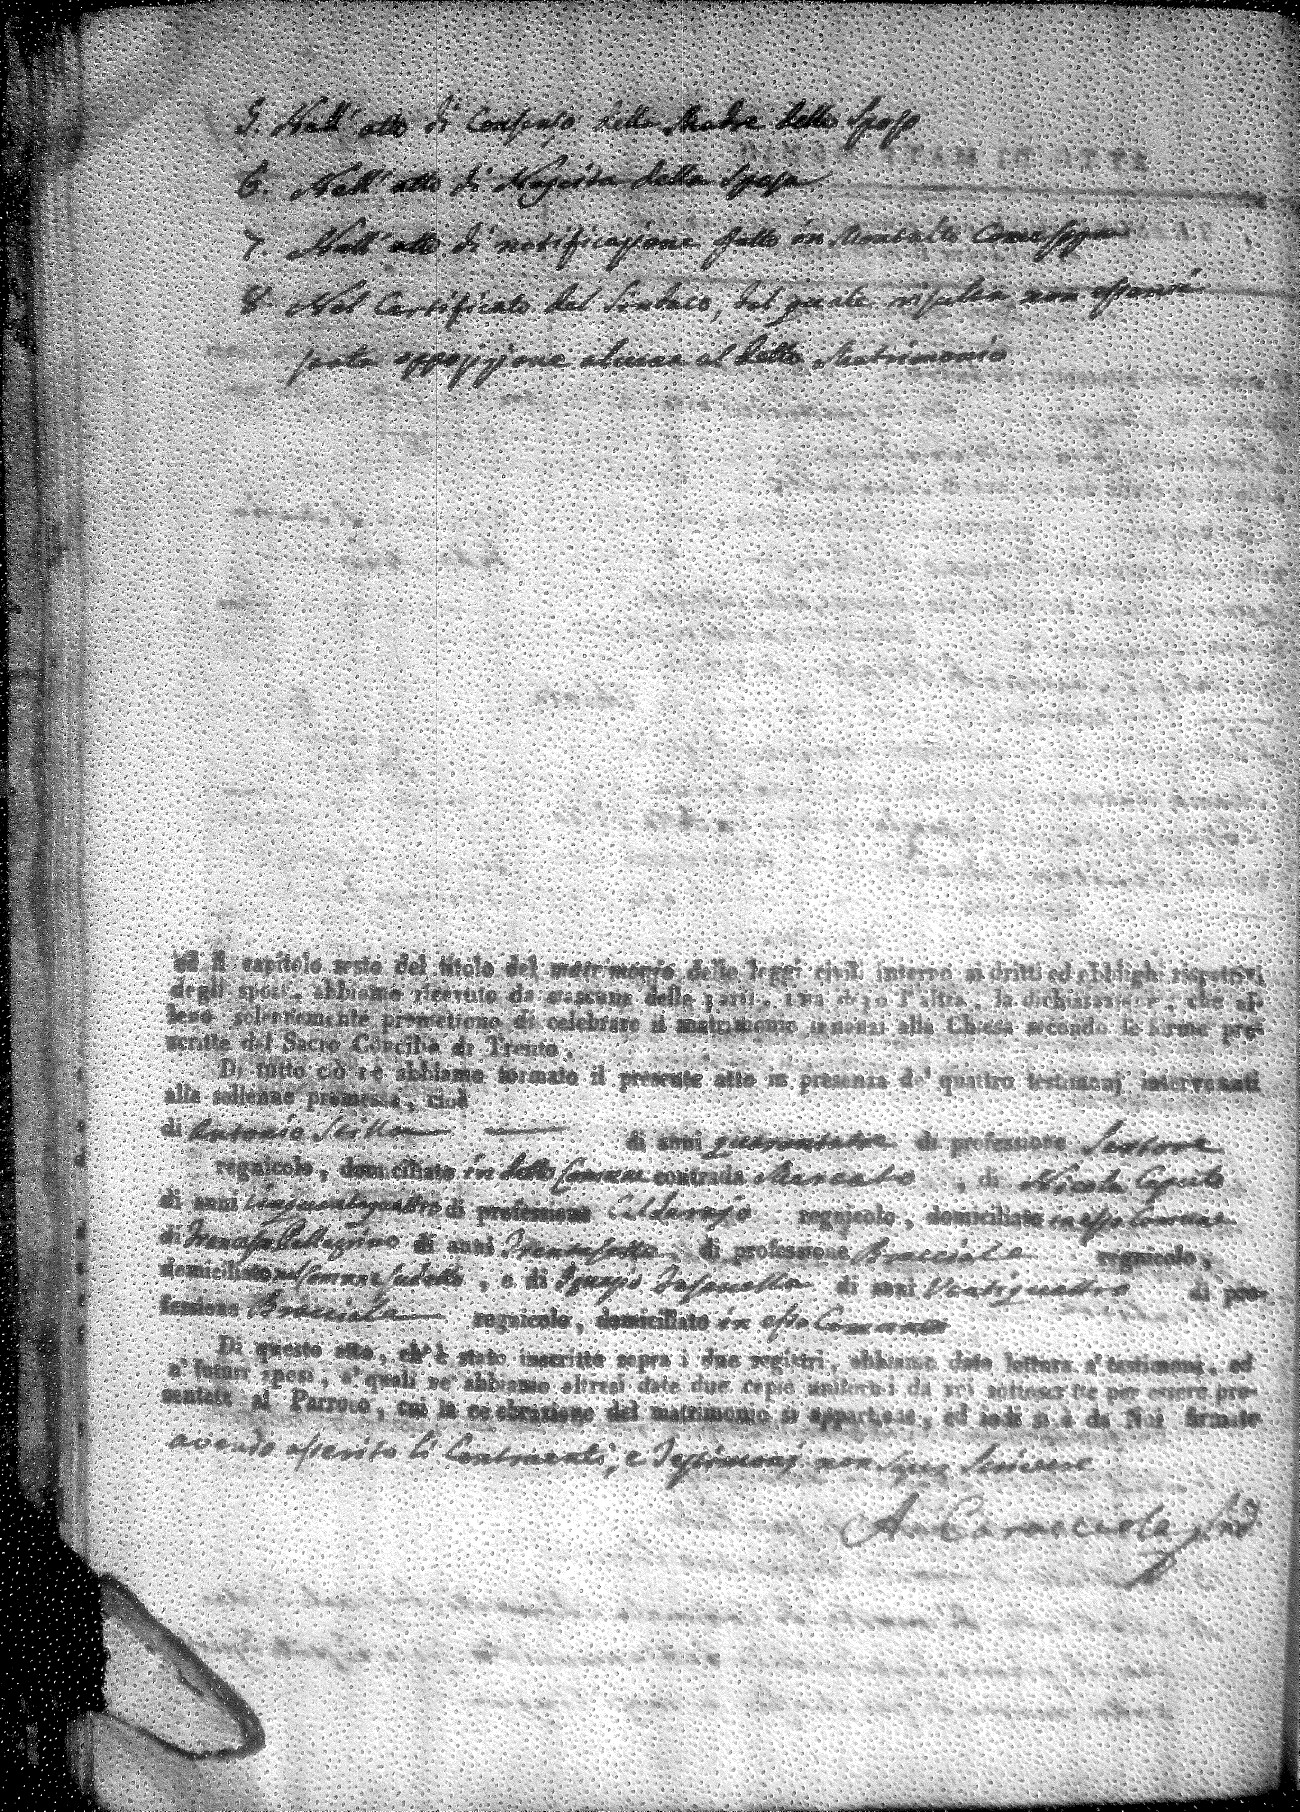 5. Nell' atto di Consenso della Madre dello Sposo
6. Nell' atto di Nascita della Sposa
7. Nell' atto di notificazione fatto in Montalto
8. Nel Certificato del Sindaco, dal quale risulta non essersi
fatta opposizione alcuna al detto Matrimonio
ed il capitolo sesto del titolo del matrimonio delle leggi civili intorno ai dritti ed obblighi rispettivi
degli sposi, abbiamo ricevuto da ciascuna delle parti, una dopo l'altra, la dichiarazione, che el-
leno solennemente promettono di celebrare il matrimonio innanzi alla Chiesa secondo le forme pre-
scritte dal Sacro Concilio di Trento.
Di tutto ciò ne abbiamo formato il presente atto in presenza de' quattro testimonj intervenuti
alla sollenne promessa, cioè
di Antonio Scilla di anni quarantatre di professione Sartore
regnicolo, domiciliato in detto Comune contrada Mercato, di Nicola Caputo
di anni Cinquantaquattro di professione Caldarajo regnicolo, domiciliato in esso Comune
di Pellegrino di anni Trentasette di professione Bracciale regnicolo,
domiciliato nel Comune Sudetto, e di Ignazio di anni Ventiquattro di pro-
fessione Bracciale regnicolo, domiciliato in esso Comune
Di questo atto, ch'è stato inscritto sopra i due registri, abbiamo dato lettura a' testimonj, ed
a' futuri sposi, a' quali ne abbiamo altresì date due copie uniformi da noi sottoscritte per essere pre-
sentate al Parroco, cui la celebrazione del matrimonio si appartiene, ed indi si è da Noi firmato
avendo asserito li Contraenti, e Testimonj non saper scrivere
Caracciolo Sind.